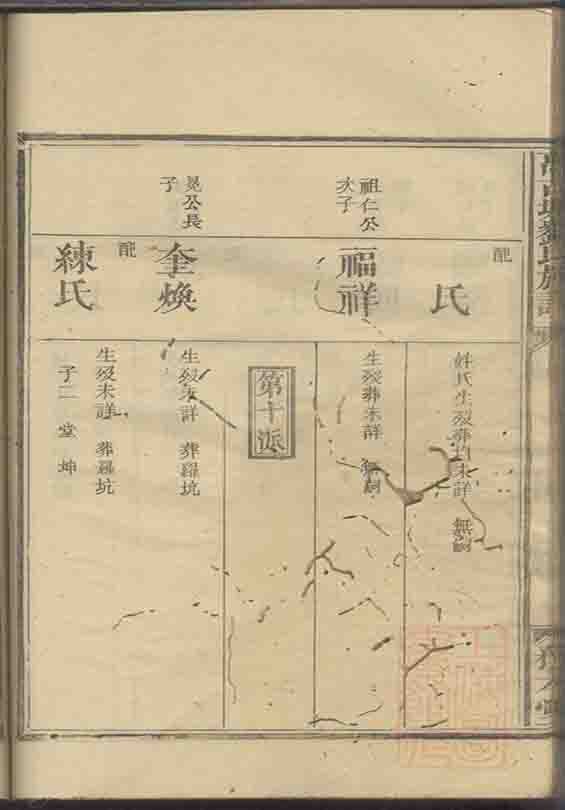 配
氏
姓氏生殁葬均未詳 無嗣
祖仁公
次子
福祥
生殁葬未詳 無嗣
第十派
晃公長
子
奎煥
生殁未詳 葬羅坑
配
練氏
生殁未詳 葬羅坑
子二 堂 坤